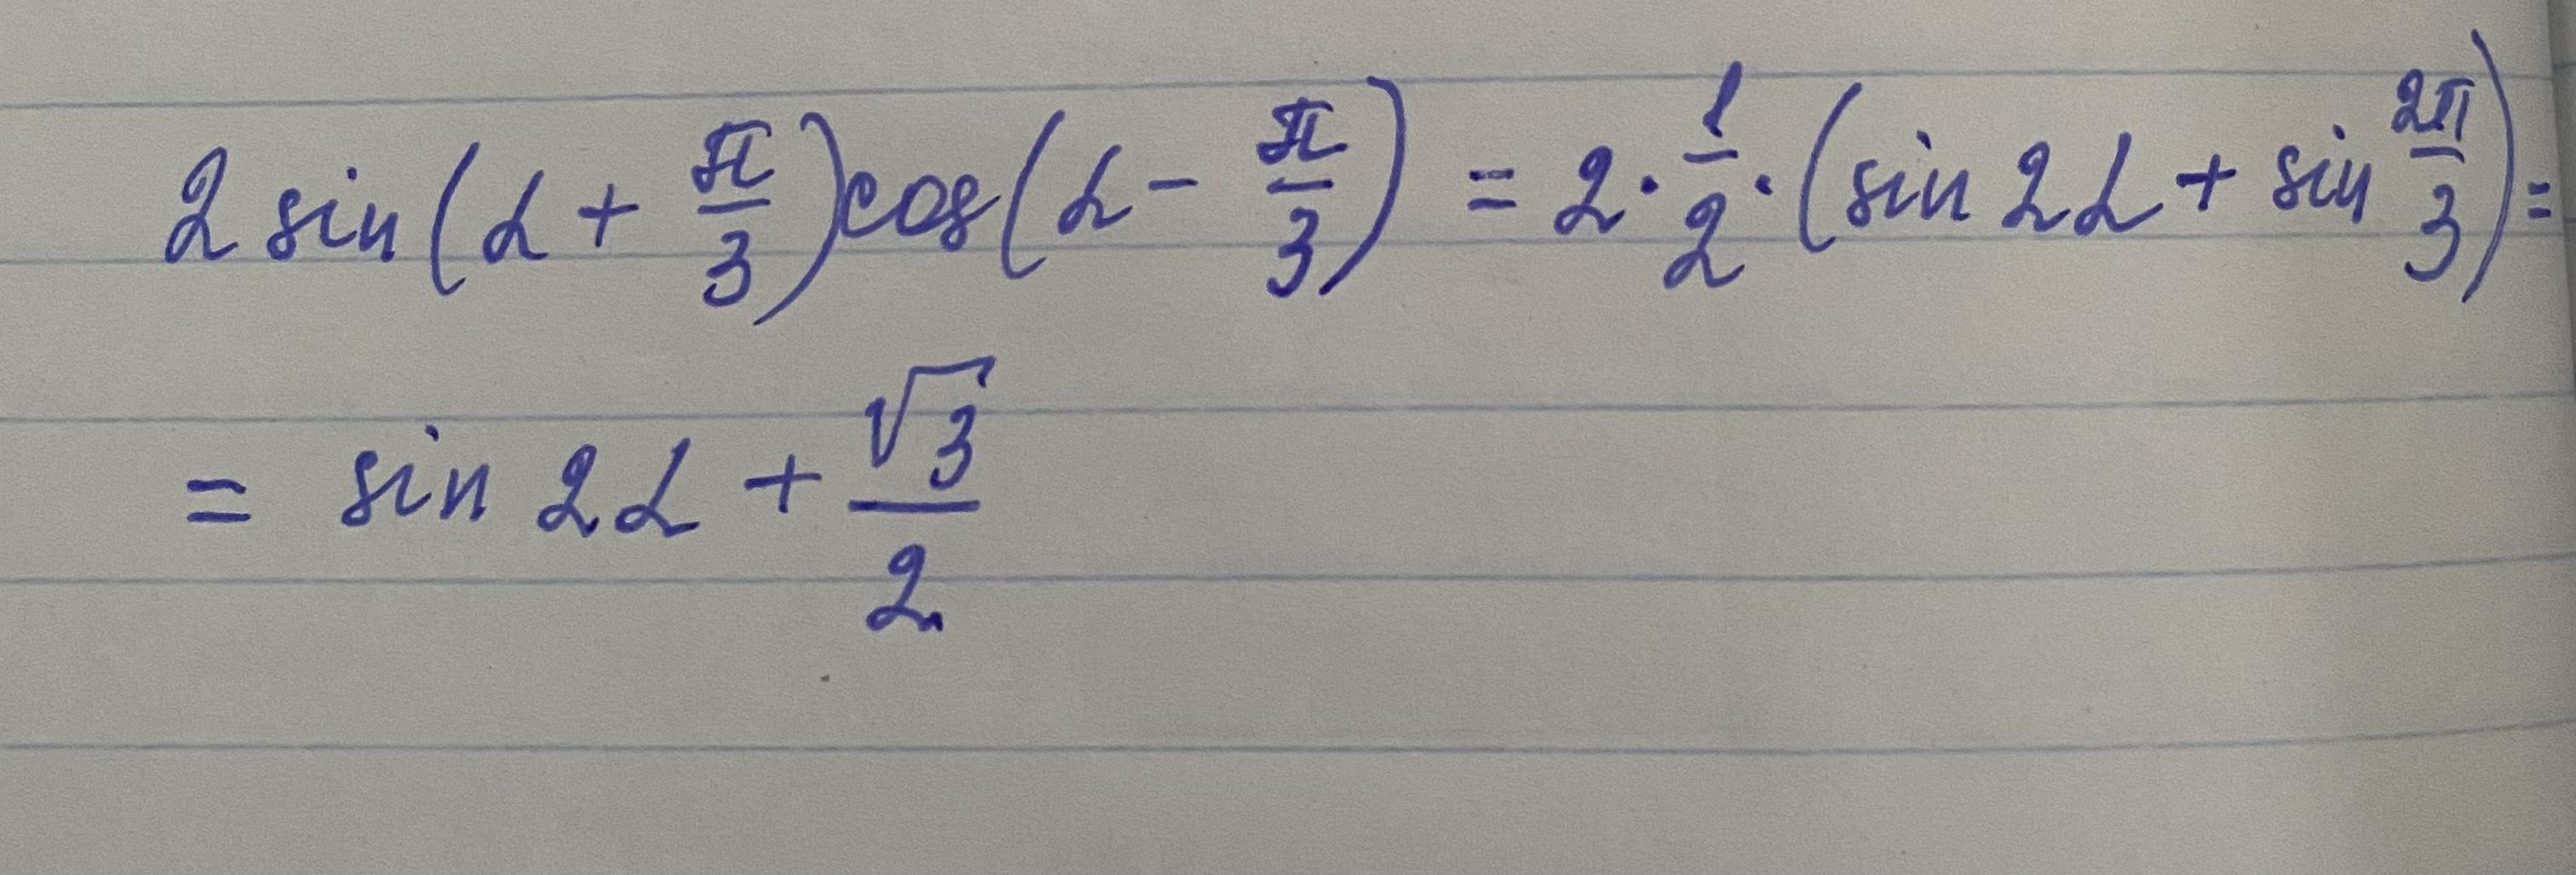 2 sin(α + π/3)cos(α - π/3) = 2·1/2·(sin 2α + sin 2π/3) =
= sin 2α + √3/2